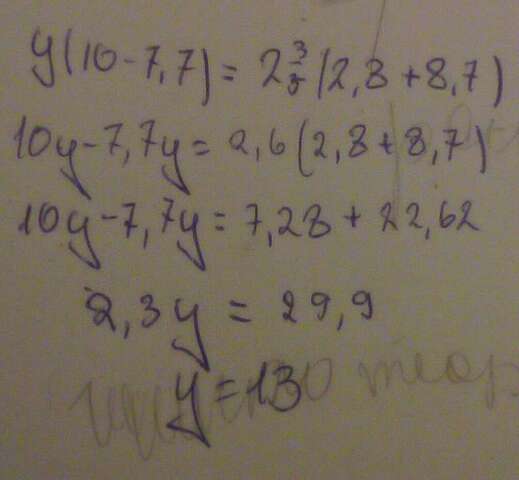 y(10-7,7)=2 3/5(2,8+8,7)
10y-7,7y=2,6(2,8+8,7)
10y-7,7y=7,28+22,62
2,3y=29,9
y=13